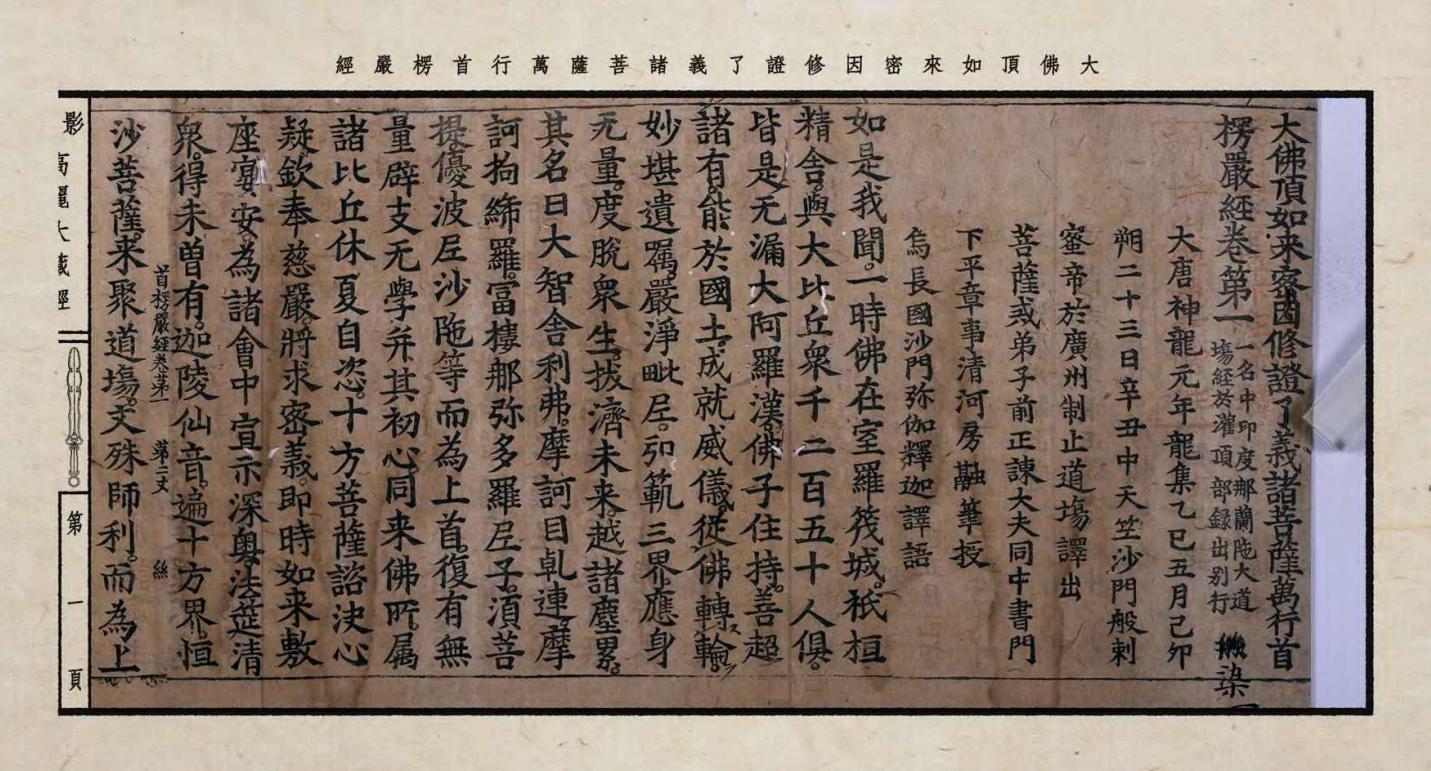 大佛頂如來密因修證了義諸菩薩萬行首楞嚴經
大佛頂如来密因修證了義諸菩薩萬行首
楞嚴經卷第一
一名中印度那蘭陁大道
塲經於灌頂部録出别行
染
大唐神龍元年龍集乙巳五月己卯
朔二十三日辛丑中天竺沙門般剌
蜜帝於廣州制止道塲譯出
菩薩戒弟子前正諫大夫同中書門
下平章事清河房融筆授
烏長國沙門弥伽釋迦譯語
如是我聞一時佛在室羅筏城祇桓
精舎與大比丘衆千二百五十人俱
皆是无漏大阿羅漢佛子住持善超
諸有能於國土成就威儀從佛轉輪
妙堪遺囑嚴淨毗尼弘範三界應身
无量度脫衆生拔濟未来越諸塵累
其名曰大智舍利弗摩訶目乹連摩
訶拘絺羅富樓那弥多羅尼子湏菩
提優波尼沙陁等而為上首復有無
量辟支无學并其初心同来佛所属
諸比丘休夏自恣十方菩薩諮決心
疑欽奉慈嚴將求密義即時如来敷
座宴安為諸會中宣示深奥法筵清
衆得未曽有迦陵仙音遍十方界恒
首楞嚴經卷第一 第二丈 絲
沙菩薩来聚道塲文殊師利而為上
影高麗大藏經
第一頁